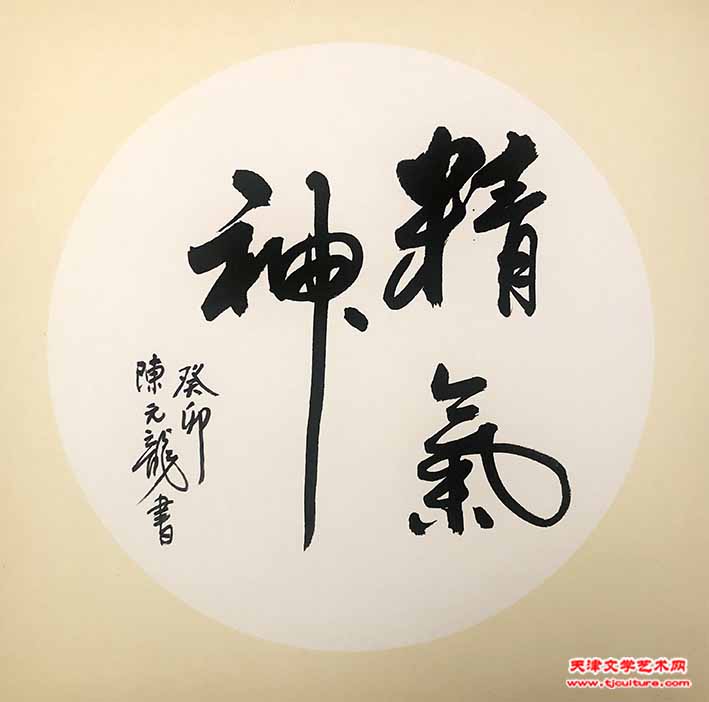 精氣
神
癸卯
陳元龍書
天津文学艺术网
www.tjculture.com